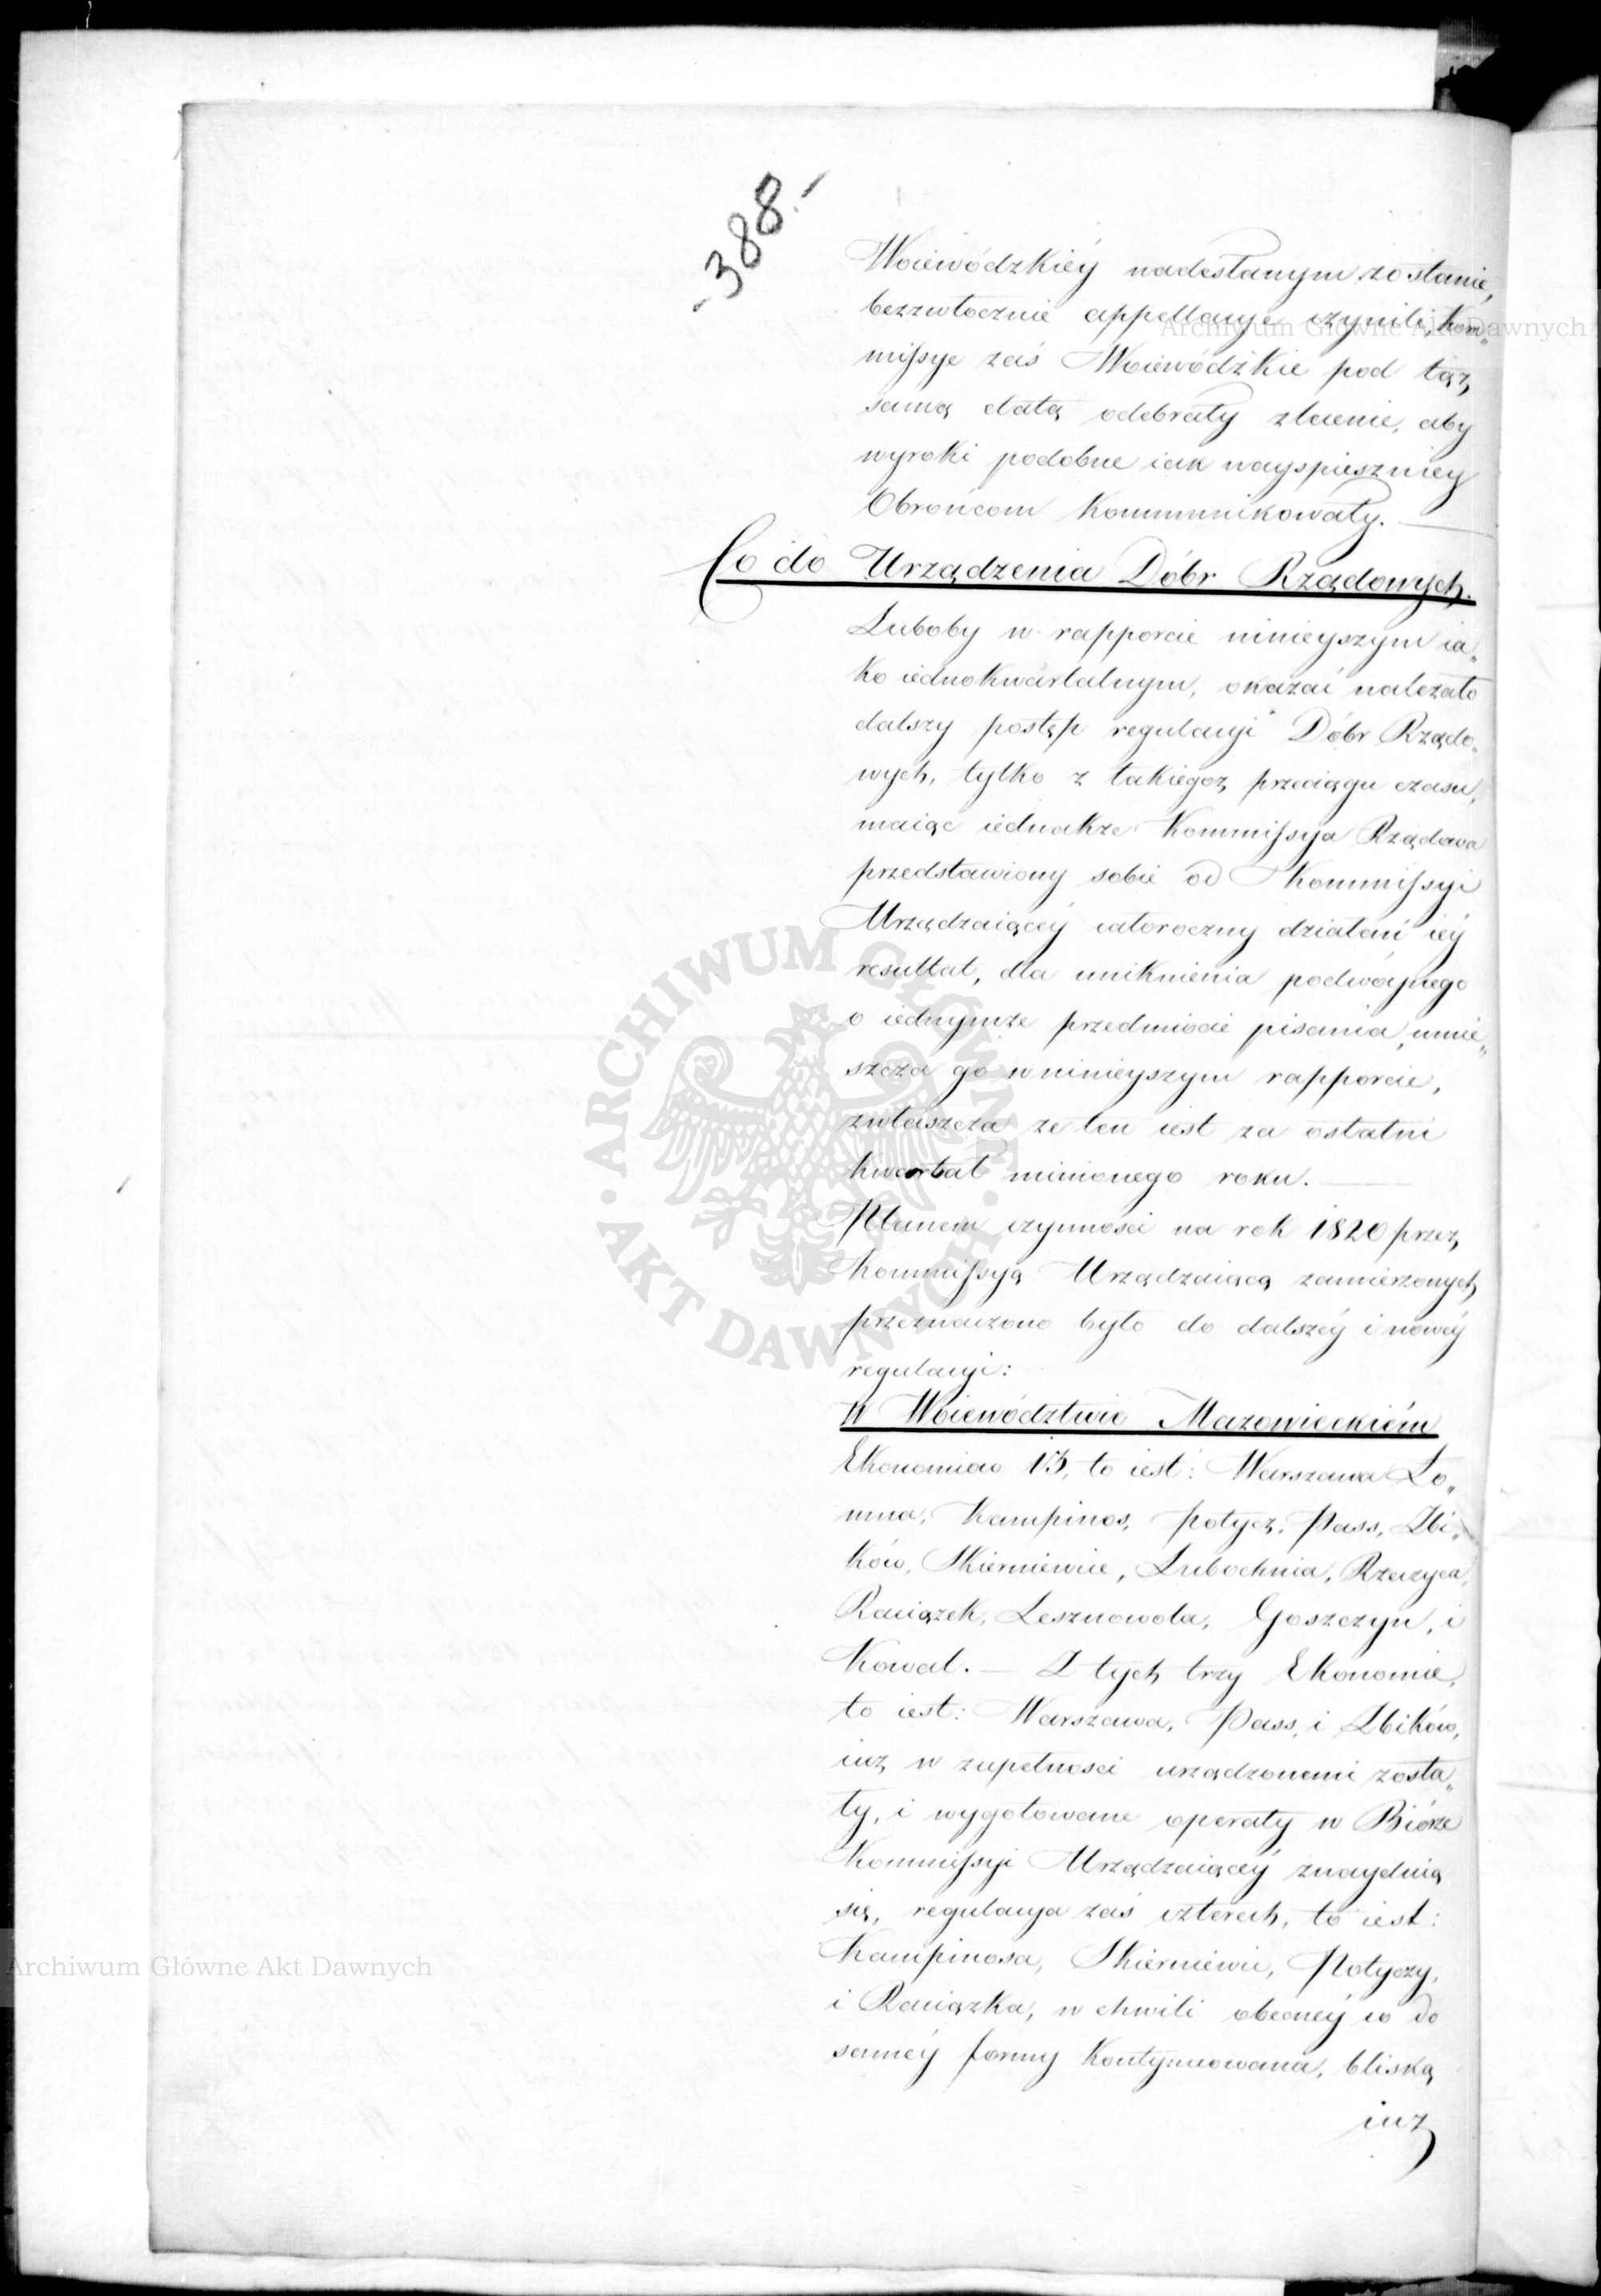 -388.-
Woiewódzkiéy nadesłanym zostanie,
bezzwłocznie appellacye czynili, Kom„
missye zaś Woiewódzkie pod tąż
samą datą odebrały zlecenie, aby
wyroki podobne iak nayspieszniey
Obrońcom Kommunikowały.
Co do Urządzenia Dóbr Rządowych.
Luboby w rapporcie ninieyszym ia„
ko iednokwartalnym, okazać należało
dalszy postęp regulacyi Dóbr Rządo„
wych, tylko z takiegoż przeciągu czasu,
maiąc iednakże Kommissya Rządowa
przedstawiony sobie od Kommissyi
Urządzaiącéy całoroczny działań iéy
resultat, dla uniknienia podwóynego
o iednymże przedmiocie pisania, umie„
szcza go w ninieyszym rapporcie,
zwłaszcza że ten iest za ostatni
kwartał minionego roku.
Planem czynności na rok 1820 przez
Kommissyą Urządzaiącą zamierzonych
przeznaczono było do dalszéy i nowéy
regulacyi:
W Woiewództwie Mazowieckiém
Ekonomiów 13, to iest: Warszawa Ło„
mna, Kampinos, Potycz, Pass, Zbi„
ków, Skierniewice, Lubochnia, Rzeczyca,
Raciążek, Lesznowola, Goszczyn, i
Kowal. — Z tych trzy Ekonomie,
to iest: Warszawa, Pass, i Zbików,
iuż w zupełności urządzonemi zosta„
ły, i wygotowane operaty w Biórze
Kommissyi Urządzaiącéy znayduią
się, regulacya zaś czterech, to iest:
Kampinosa, Skierniewic, Potyczy,
i Raciążka, w chwili obecnéy co do
saméy formy Kontynuowana, bliską
iuż
Archiwum Główne Akt Dawnych
ARCHIWUM GŁÓWNE · AKT DAWNYCH ·
Archiwum Główne Akt Dawnych